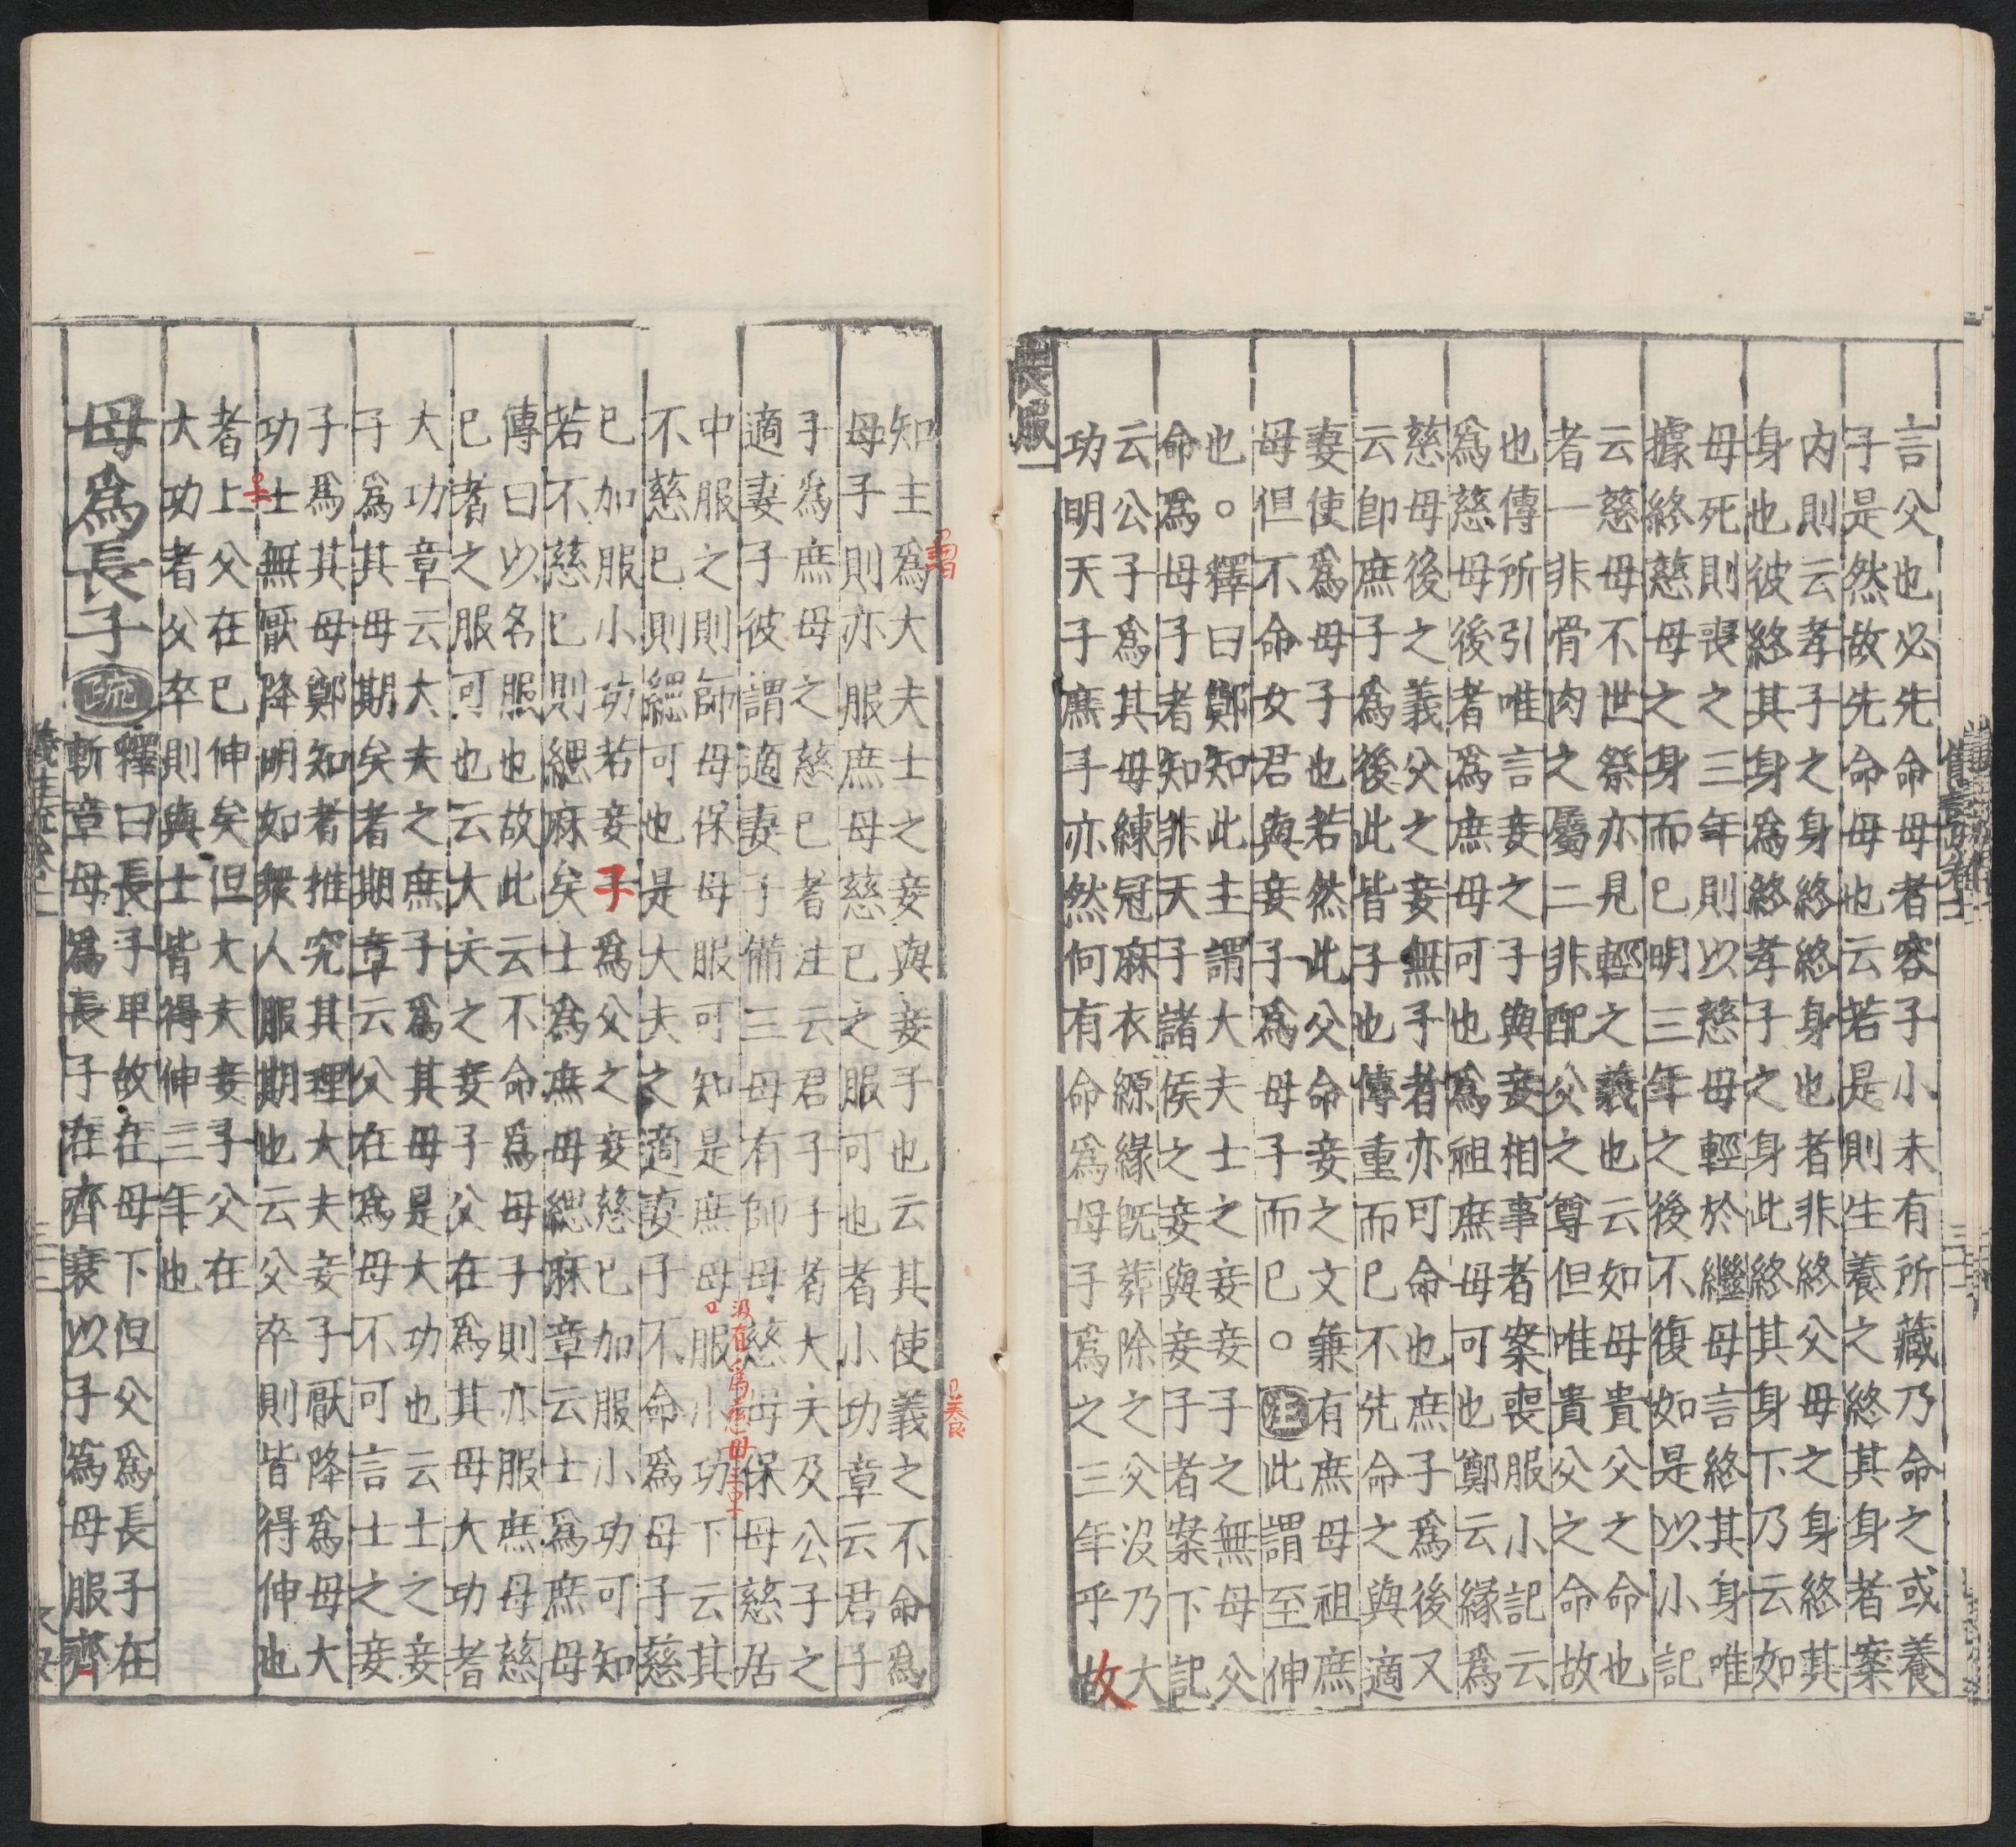 言父也必先命母者容子小未有所藏乃命之或養
子是然故先命母也云若是則生養之終其身者案
内則云孝子之身終終身也者非終父母之身終其
身也彼終其身爲終孝子之身此終其身下乃云如
母死則喪之三年則以慈母輕於繼母言終其身唯
據終慈母之身而已明三年之後不復如是以小記
云慈母不世祭亦見輕之義也云如母貴父之命也
者一非骨肉之屬二非配父之尊但唯貴父之命故
也傳所引唯言妾之子與妾相事者案喪服小記云
爲慈母後者爲庶母可也爲祖庶母可也鄭云縁爲
慈母後之義父之妾無子者亦可命也庶子爲後又
云即庶子爲後此皆子也傳重而已不先命之與適
妻使爲母子也若然此父命妾之文兼有庶母祖庶
母但不命女君與妾子爲母子而已○注此謂至伸
也○釋曰鄭知此主謂大夫士之妾妾子之無母父
命爲母子者知非天子諸侯之妾與妾子者案下記
云公子爲其母練冠麻衣縓緣既葬除之父沒乃大
功明天子庶子亦然何有命爲母子爲之三年乎故
喪服一
知主爲大夫士之妾與妾子也云其使義之不命爲
母子則亦服庶母慈已之服可也者小功章云君子
子爲庶母之慈已者注云君子子者大夫及公子之
適妻子彼謂適妻子備三母有師母慈母保母慈居
中服之則師母保母服可知是庶母服小功下云其
不慈已則緦可也是大夫之適妻子不命爲母子慈
已加服小功若妾子爲父之妾慈已加服小功可知
若不慈已則緦麻矣士爲庶母緦麻章云士爲庶母
傳曰以名服也故此云不命爲母子則亦服庶母慈
已者之服可也云大夫之妾子父在爲其母大功者
大功章云大夫之庶子爲其母是大功也云士之妾
子爲其母期矣者期章云父在爲母不可言士之妾
子爲其母鄭知者推究其理大夫妾子厭降爲母大
功士無厭降明如衆人服期也云父卒則皆得伸也
者上父在已伸矣但大夫妾子父在
大功者父卒則與士皆得伸三年也
母爲長子疏釋曰長子卑故在母下但父爲長子在
斬章母爲長子在齊衰以子爲母服齊